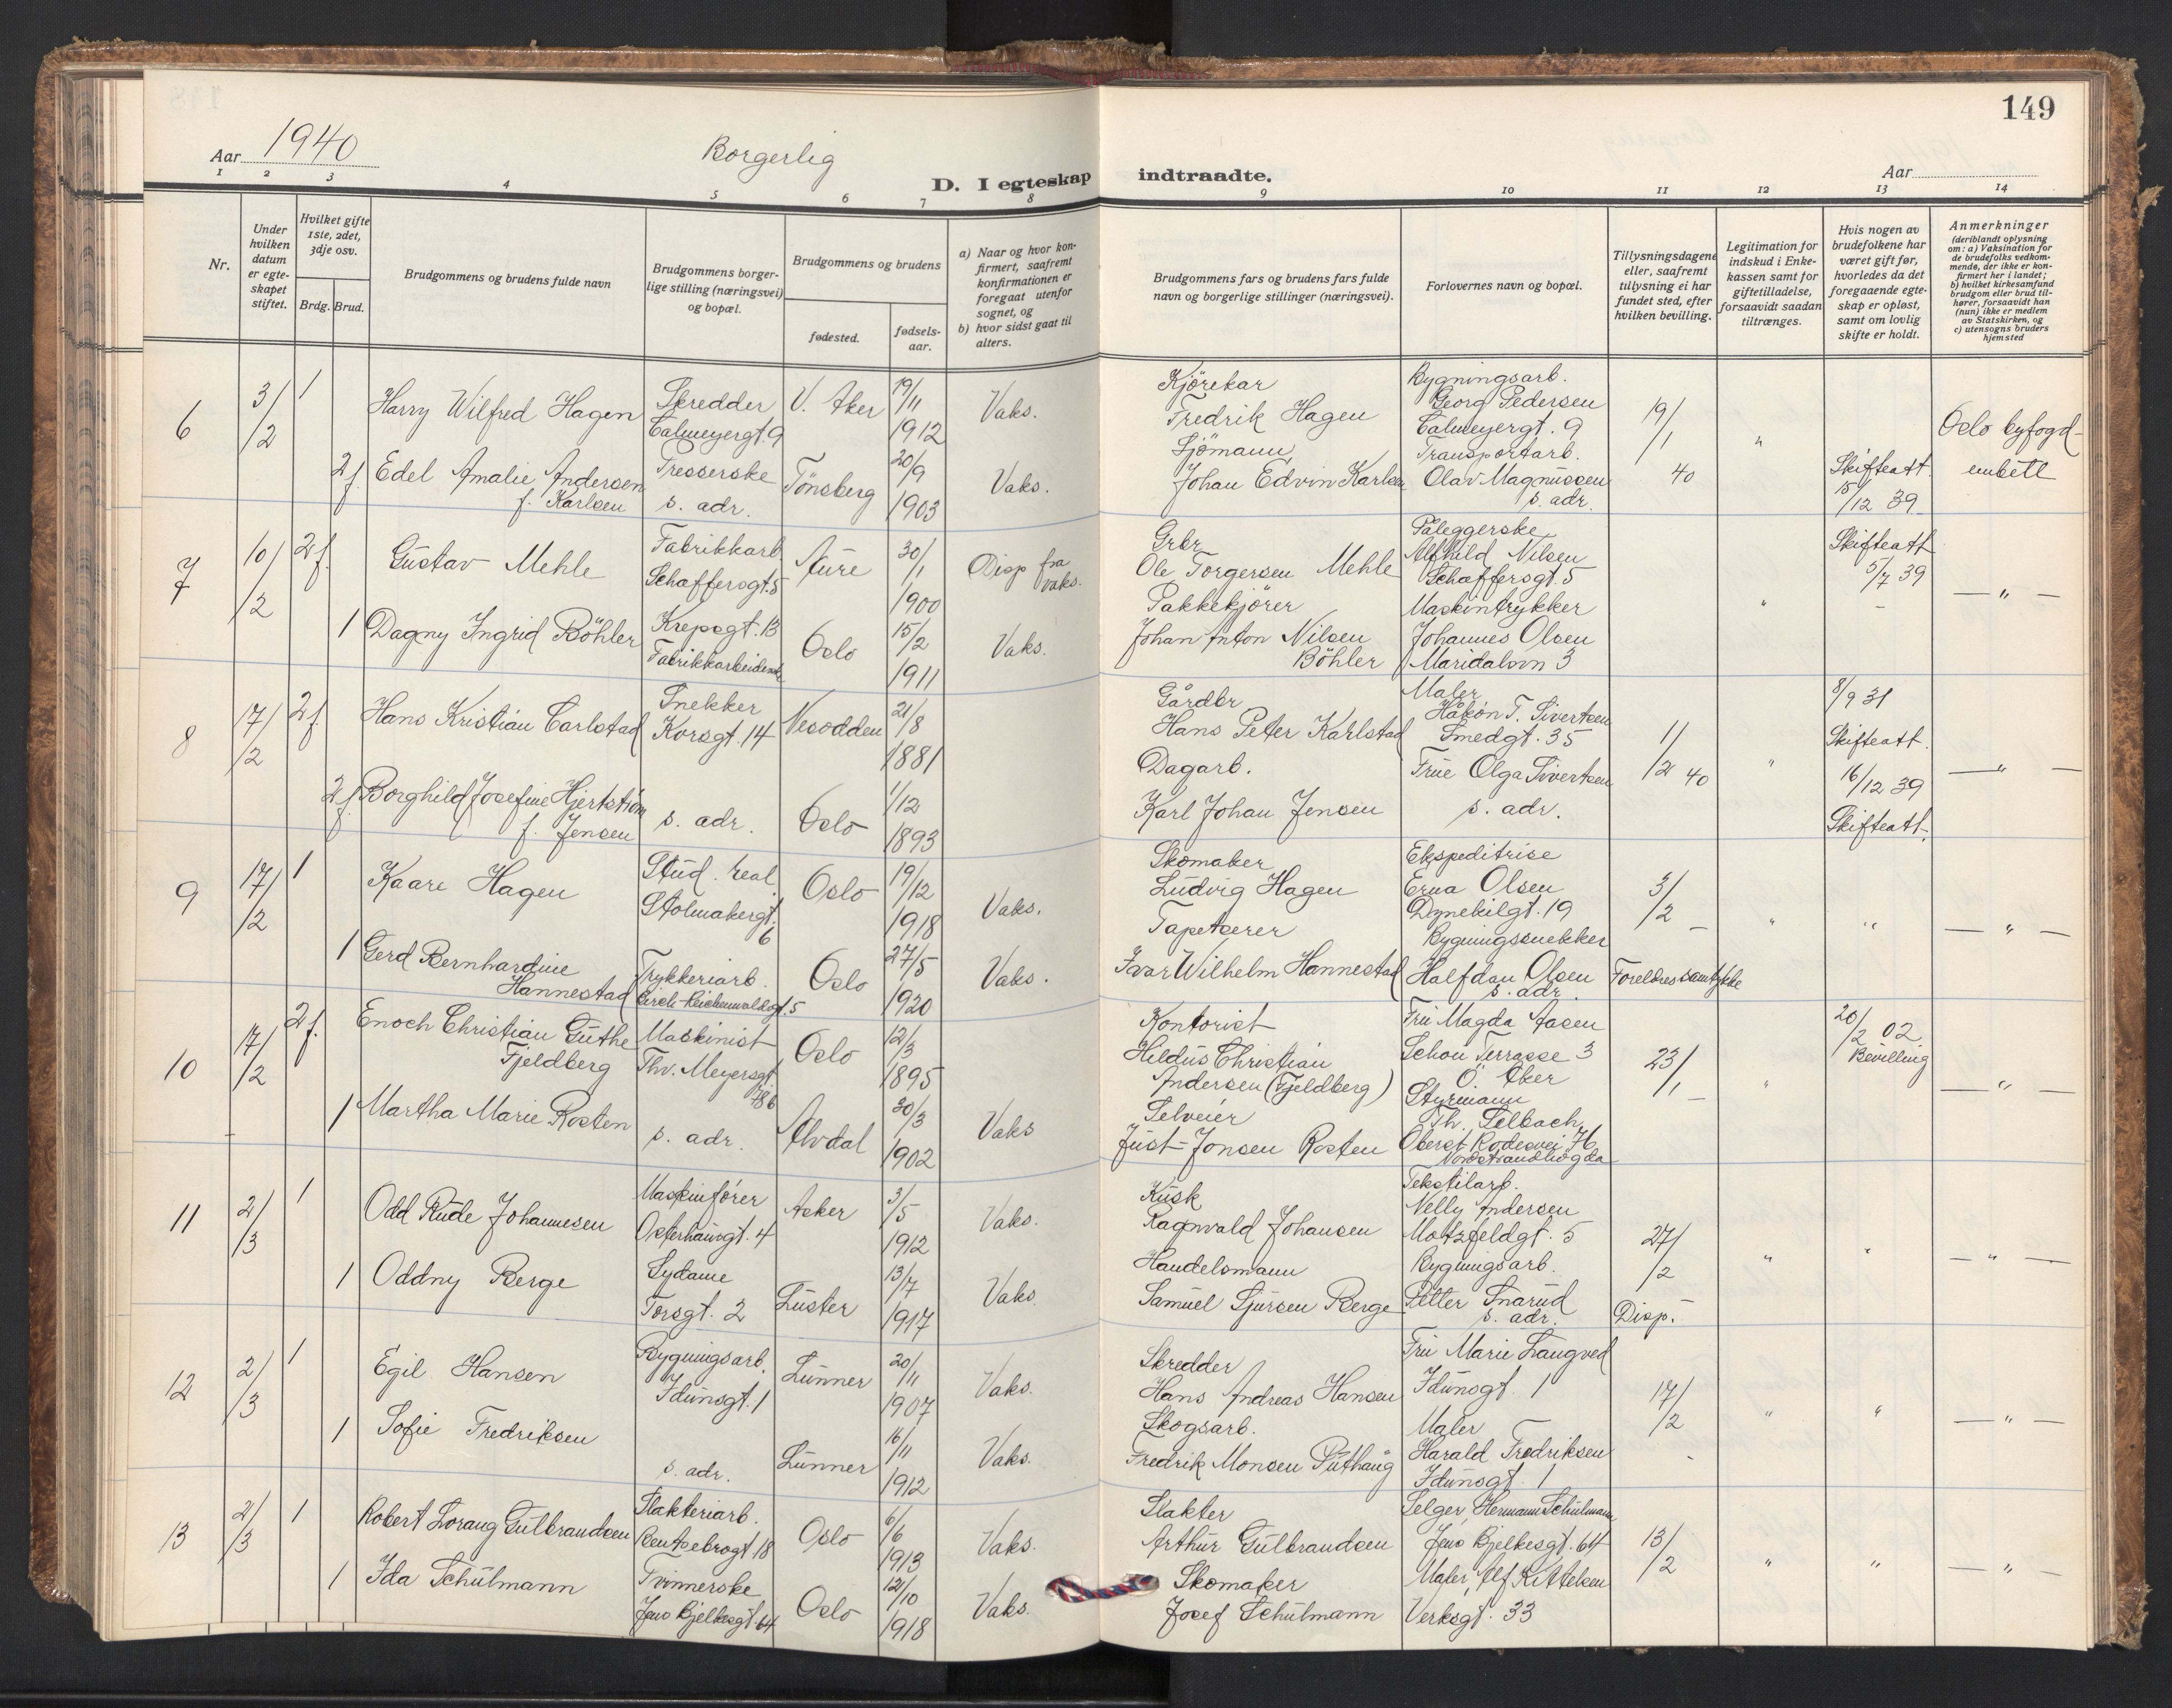 149
Aar 1940
Borgerlig
D. I egteskap indtraadte.
Aar
1 2 3 4 5 6 7 8 9 10 11 12 13 14
Nr.
Under hvilken datum er egte-skapet stiftet.
Hvilket gifte 1ste, 2det, 3dje osv.
Brdg. Brud.
Brudgommens og brudens fulde navn
Brudgommens borger-lige stilling (næringsvei) og bopæl.
Brudgommens og brudens
fødested.
fødsels-aar.
a) Naar og hvor kon-firmert, saafremt konfirmationen er foregaat utenfor sognet, og
b) hvor sidst gaat til alters.
Brudgommens fars og brudens fars fulde navn og borgerlige stillinger (næringsvei).
Forlovernes navn og bopæl.
Tillysningsdagene eller, saafremt tillysning ei har fundet sted, efter hvilken bevilling.
Legitimation for indskud i Enke-kassen samt for giftetilladelse, forsaavidt saadan tiltrænges.
Hvis nogen av brudefolkene har været gift før, hvorledes da det foregaaende egte-skap er opløst, samt om lovlig skifte er holdt.
Anmerkninger (deriblandt oplysning om: a) Vaksination for de brudefolks vedkom-mende, der ikke er kon-firmert her i landet; b) hvilket kirkesamfund brudgom eller brud til-hører, forsaavidt han (hun) ikke er medlem av Statskirken, og c) utensogns bruders hjemsted
6 3/2 1 Harry Wilfred Hagen Skredder Calmeyergt. 9 V. Aker 19/11 1912 Vaks. Kjörekar Fredrik Hagen Bygningsarb. Georg Pedersen Calmeyergt. 9 19/1 40 " Oslo byfogd-embett
2 f. Edel Amalie Andersen f. Karlsen Presserske s. adr. Tönsberg 20/9 1903 Vaks. Sjömann Johan Edvin Karlsen Transportarb. Olav Magnussen s. adr. Skifteatt. 15/12 39
7 10/2 2 f. Gustav Mehle Fabrikkarb Schaffersgt. 5 Aure 30/1 1900 Disp fra vaks. Grbr Ole Torgersen Mehle Påleggerske Alfhild Nilsen Schaffersgt. 5 " Skifteatt 5/7 39 — " —
1 Dagny Ingrid Böhler Krepsgt. 13 Fabrikkarbeiderske Oslo 15/2 1911 Vaks. Pakkekjörer Johan Anton Nilsen Böhler Maskintrykker Johannes Olsen Maridalsvn 3
8 17/2 2 f. Hans Kristian Carlstad Snekker Korsgt. 14 Nesodden 21/8 1881 Gårdbr Hans Peter Karlstad Maler Håkon T. Sivertsen Smedgt. 35 11/2 40 " 8/9 31 Skifteatt. — " —
2 f. Borghild Josefine Hjertström f. Jensen s. adr. Oslo 1/12 1893 Dagarb. Karl Johan Jensen Frue Olga Sivertsen s. adr. 16/12 39 Skifteatt.
9 17/2 1 Kaare Hagen Stud. real Stolmakergt. 6 Oslo 19/12 1918 Vaks. Skomaker Ludvig Hagen Ekspeditrise Erna Olsen Dynekilgt. 19 3/2 — " " — " —
1 Gerd Bernhardine Hannestad Trykkeriarb. Birch-Reichenwaldsgt. 5 Oslo 27/5 1920 Vaks. Tapetserer Ivar Wilhelm Hannestad Bygningssnekker Halfdan Olsen s. adr. Foreldres samtykke
10 17/2 2 f. Enoch Christian Guthe Fjeldberg Maskinist Thv. Meyersgt Oslo 12/3 1895 Kontorist Hildus Christian Andersen (Fjeldberg) Fru Magda Aasen Schou Terrasse 3 Ö. Aker 23/1 — " 20/2 02. Bevilling — " —
1 Martha Marie Rosten s. adr. Alvdal 30/3 1902 Vaks Selveier Just Jonsen Rosten Styrmann Th. Selbach, Oberst Rodesvei 76 Nordstrandhögda
11 2/3 1 Odd Rude Johannesen Maskinfører Osterhausgt. 4 Asker 3/5 1912 Vaks. Kusk Ragnvald Johansen Tekstilarb. Nelly Andersen Motzfeldgt. 5 27/2 " " — " —
1 Oddny Berge Sydame Torsgt. 2 Luster 13/7 1917 Vaks. Handelsmann Samuel Sjursen Berge Bygningsarb. Petter Snarud s. adr. Disp.
12 2/3 1 Egil Hansen Bygningsarb. Idunsgt. 1 Lunner 20/11 1907 Vaks. Skredder Hans Andreas Hansen Fru Marie Langved Idunsgt. 1 17/2 " " — " —
1 Sofie Fredriksen s. adr. Lunner 16/11 1912 Vaks. Skogsarb. Fredrik Monsen Maler Harald Fredriksen Idunsgt. 1
13 2/3 1 Robert Lorang Gulbrandsen Slakteriarb. Bentsebrogt 18 Oslo 6/6 1913 Vaks. Slakter Arthur Gulbrandsen Selger, Hermann Schulmann Jens Bjelkesgt. 64 13/2 " " — " —
1 Ida Schulmann Tvinnerske Jens Bjelkesgt 64 Oslo 12/10 1918 Vaks. Skomaker Josef Schulmann Maler, Alf Kittelsen Verksgt. 33